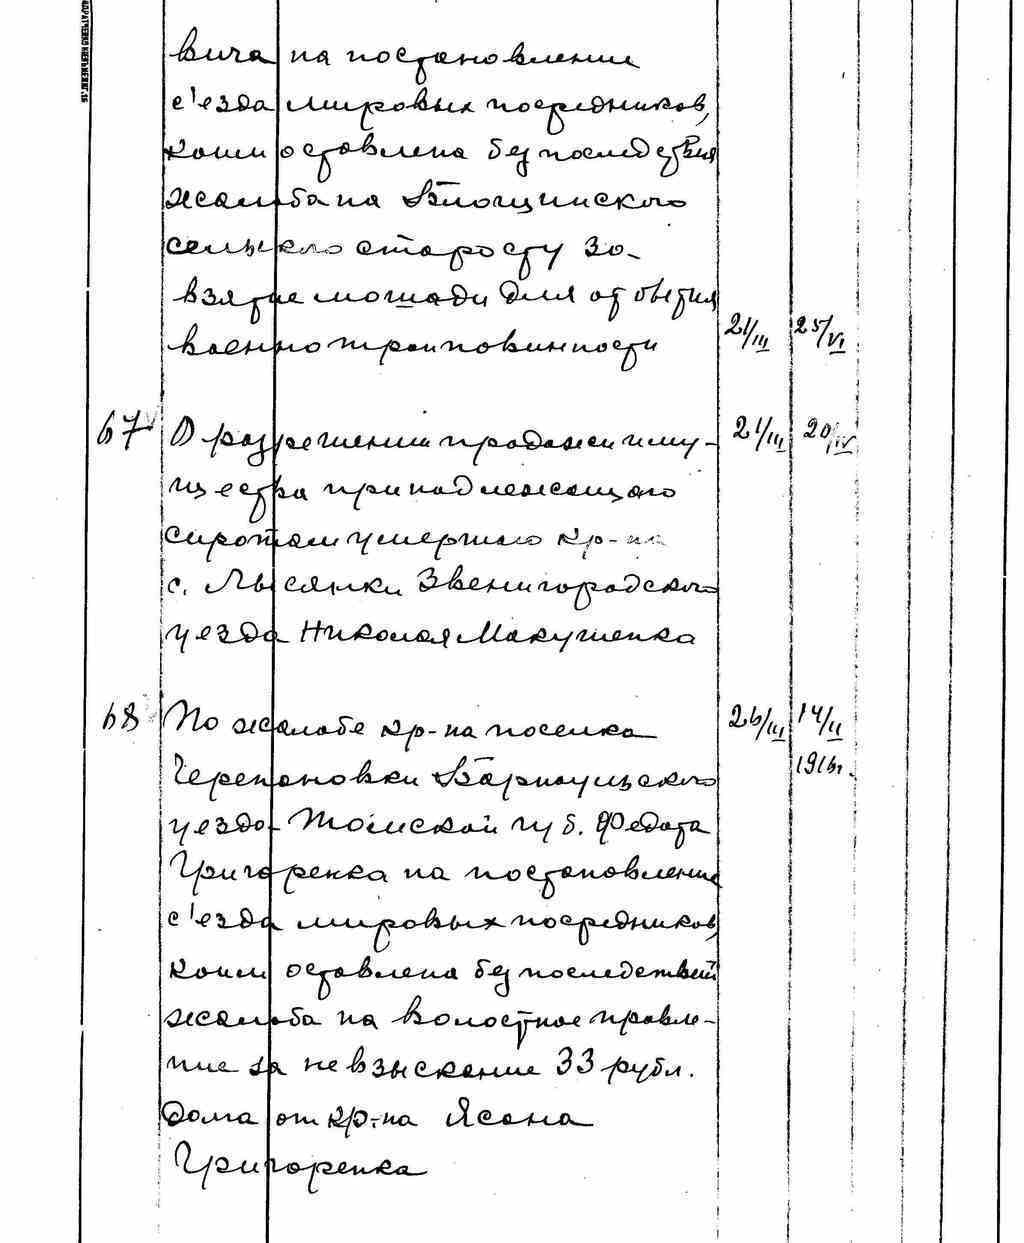 вича на постановлении
с'езда мировых посредников,
коим оставлена без последствия
жалоба на Блощинского
сельского старосту за
взятие лошади для отбытия
военно трап повинности 21/III 25/VI
67 О разрешении продажи иму-
щества принадлежащего
сиротам умершего кр-на
с. Лысянки Звенигородского
уезда Николая Макушенка 21/III 20/IV
68 По жалобе кр-на поселка
Черепановки Барнаульского
уезда Томской губ. Федота
Григоренка на постановление
с'езда мировых посредников,
коим оставлена без последствий
жалоба на волостное правле-
ние за невзыскание 33 рубл.
долга от кр-на Ясона
Григоренка 26/III 14/II
1916г.